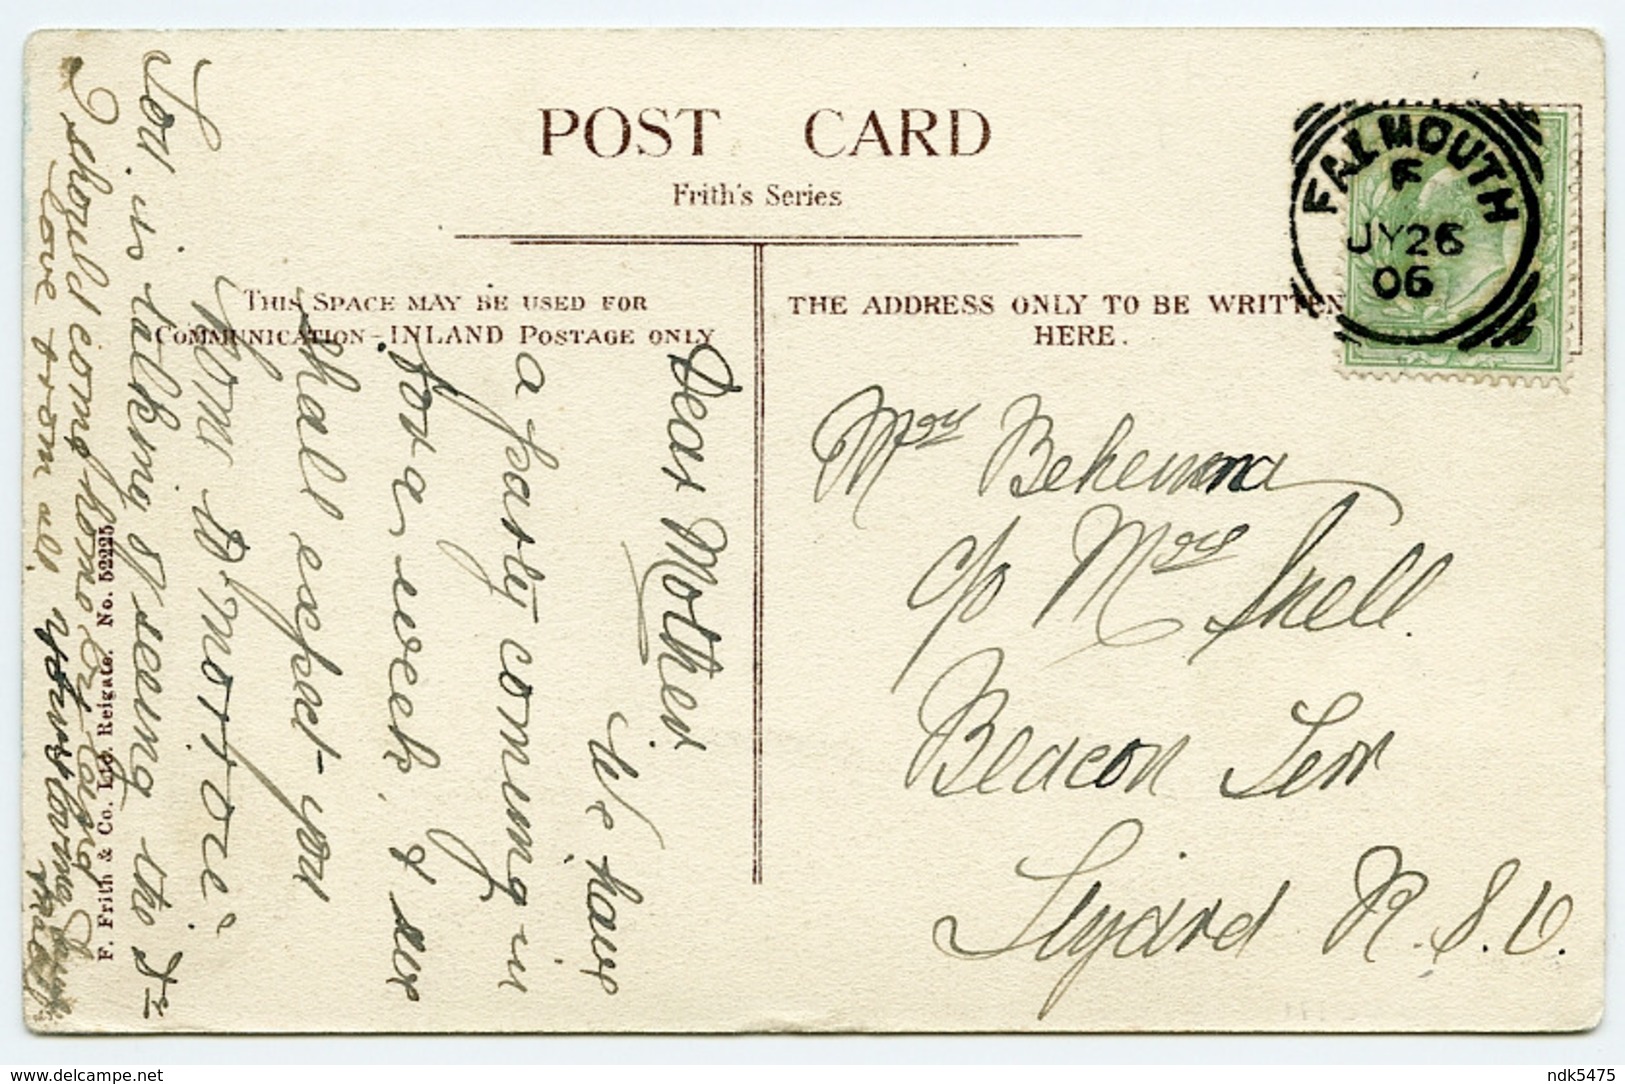 POST CARD
Frith's Series
THIS SPACE MAY BE USED FOR
COMMUNICATION - INLAND POSTAGE ONLY
THE ADDRESS ONLY TO BE WRITTEN
HERE.
FALMOUTH
F
JY 26
06
Mrs Behenna
c/o Mrs Snell.
Beacon Terr
Liyard R.S.O.
Dear Mother
We have
a party coming in
for a week. & see
shall expect you
home to morrow.
is talking of seeing the
I should come home by
love from all your loving
F. Frith & Co. Ltd. Reigate. No. 52225
www.delcampe.net
ndk5475